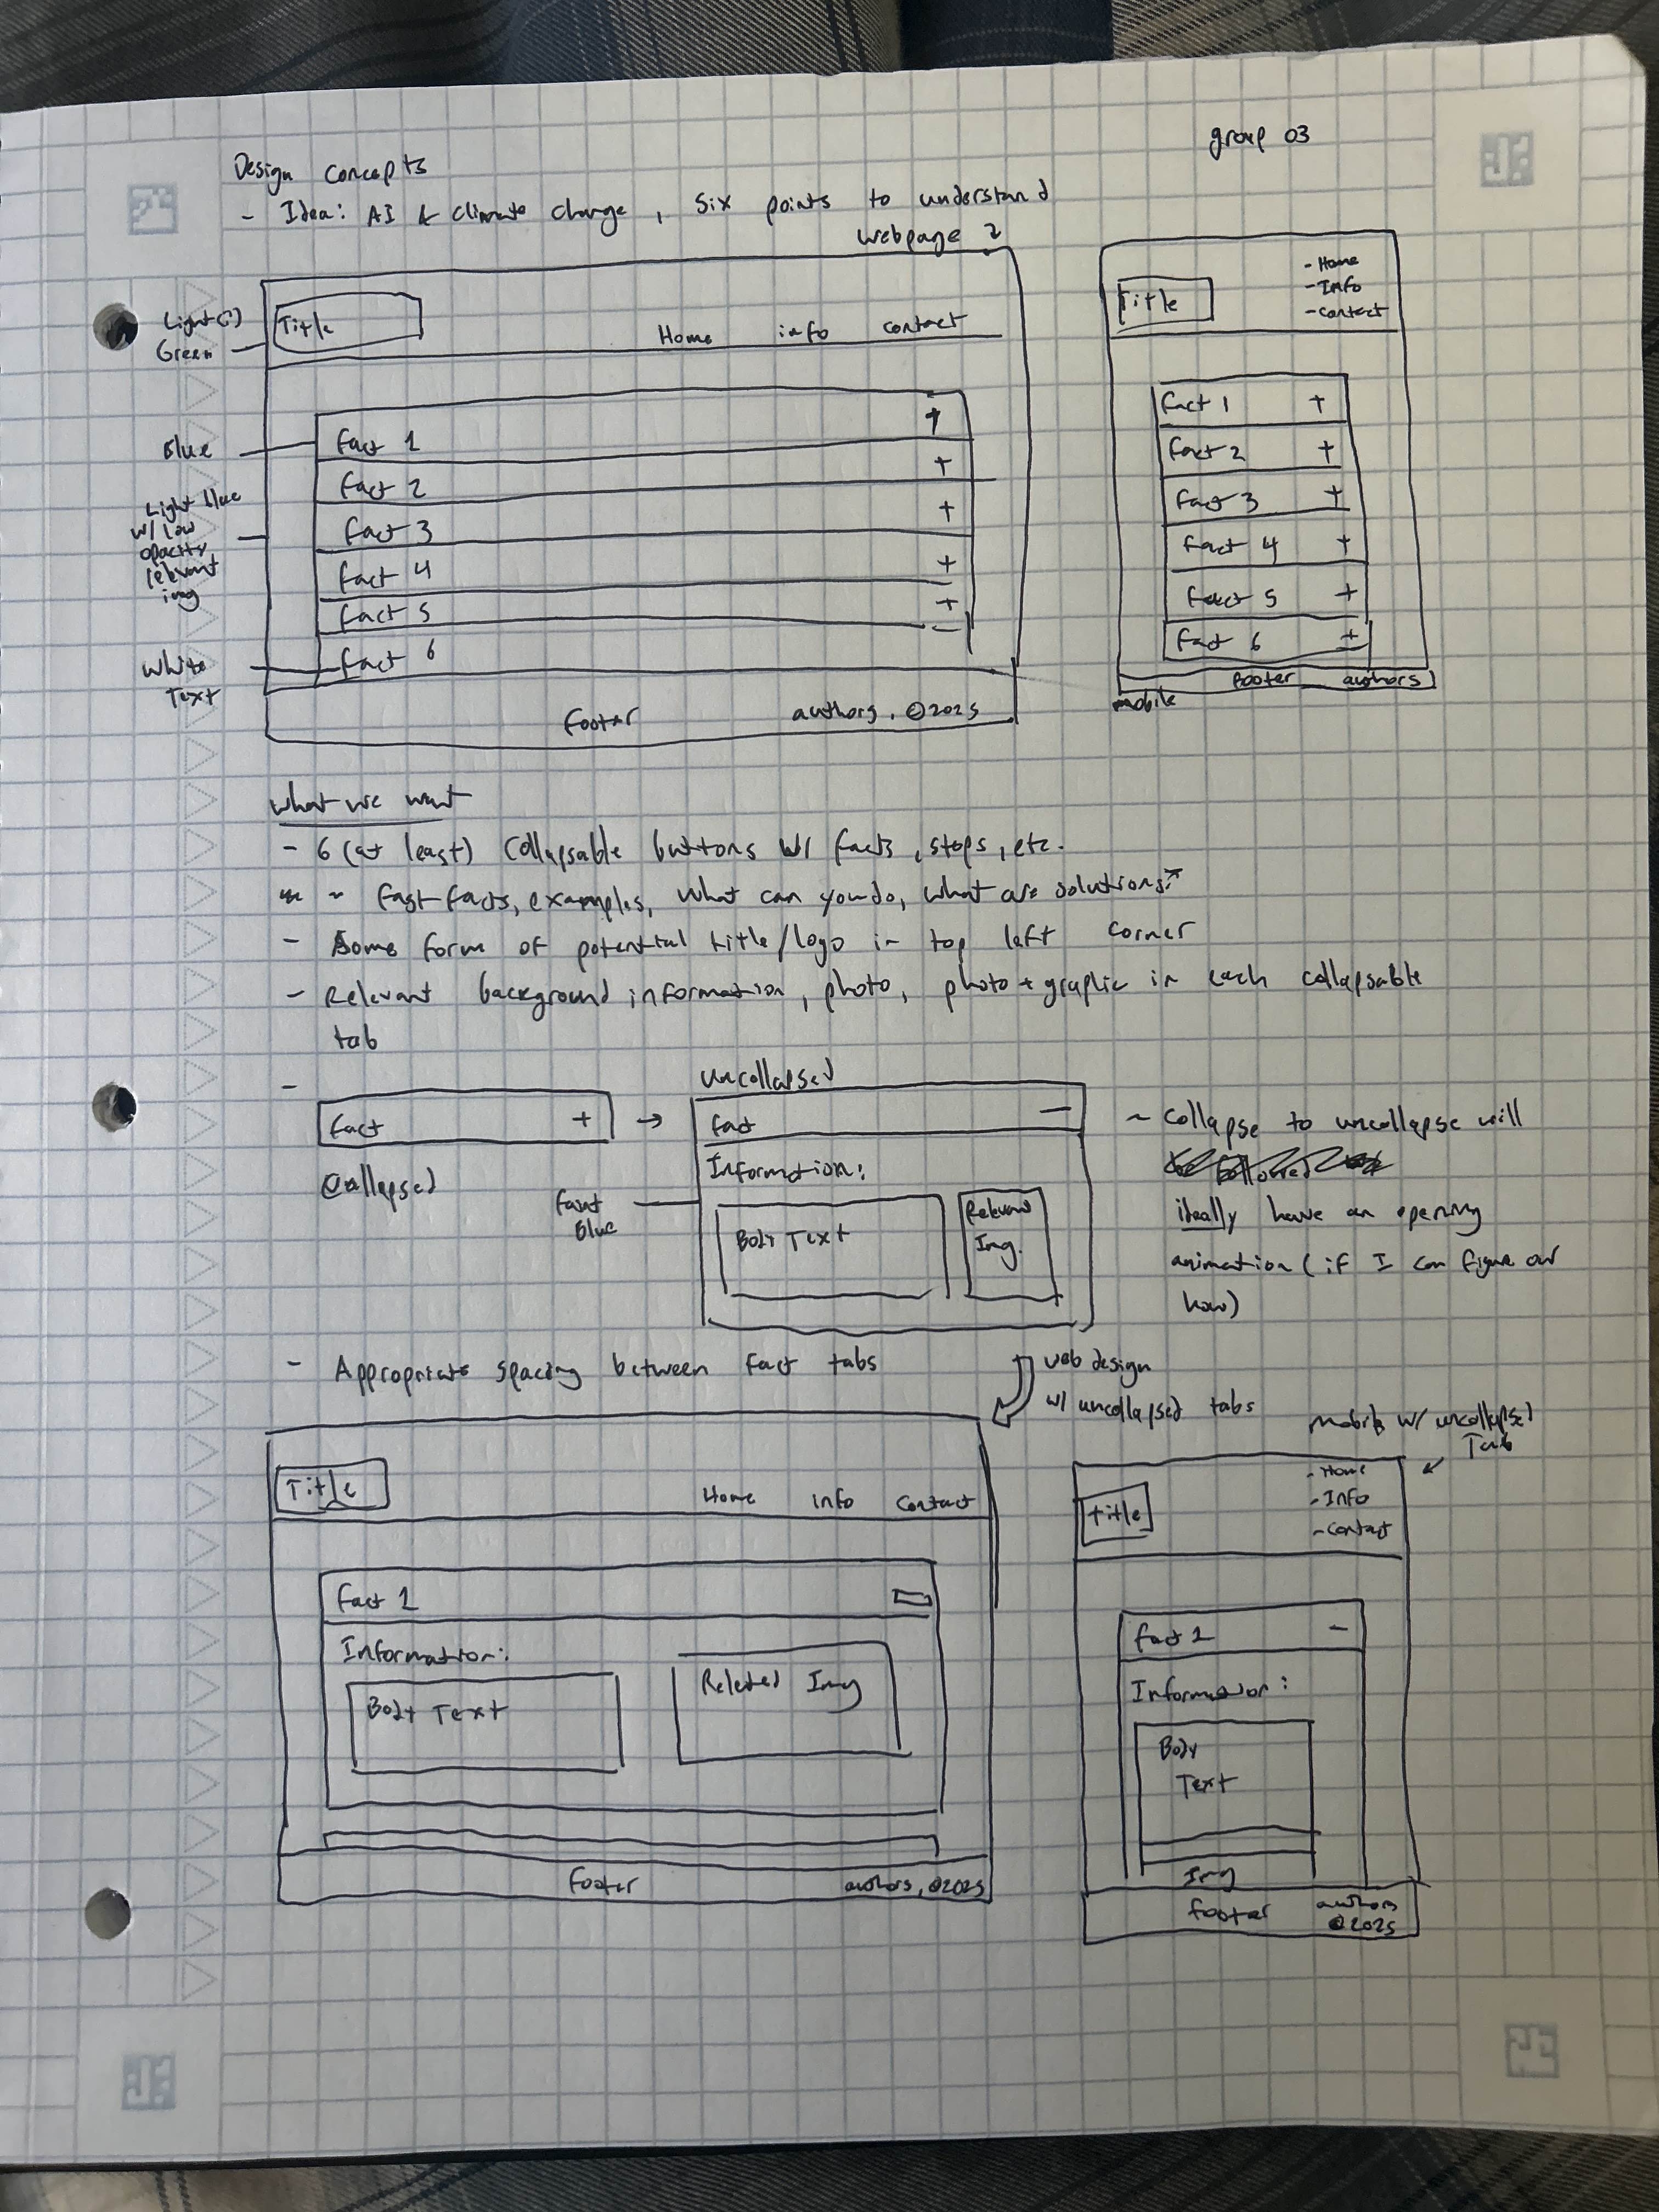 group 03
Design concepts
- Idea: AI & climate change, six points to understand
webpage
Light(?)
Green
Title
Home info contact
Blue
Fact 1 +
Fact 2 +
Fact 3 +
Fact 4 +
Fact 5 +
Fact 6
Light blue
w/ low
opacity
relevant
img
White
Text
Footer authors, ©2025
Title
- Home
- Info
- contact
Fact 1 +
Fact 2 +
Fact 3 +
Fact 4 +
Fact 5 +
Fact 6 +
Footer authors
mobile
what we want
- 6 (at least) collapsable buttons w/ facts, stops, etc.
- fast facts, examples, what can you do, what are solutions?
- Some form of potential title/logo in top left corner
- Relevant background information, photo, photo + graphic in each collapsable
tab
-
Fact +
→
Collapsed
uncollapsed
Fact -
Information:
Faint
Blue
Body Text
Relevant
Img.
~ Collapse to uncollapse will
ideally have an opening
animation (if I can figure out
how)
- Appropriate spacing between fact tabs
web design
w/ uncollapsed tabs
Title
Home info Contact
Fact 1
Information:
Body Text
Related Img
Footer authors, ©2025
mobile w/ uncollapsed
Tab
Title
- Home
- Info
- Contact
Fact 1 -
Information:
Body
Text
Img
Footer
authors
©2025